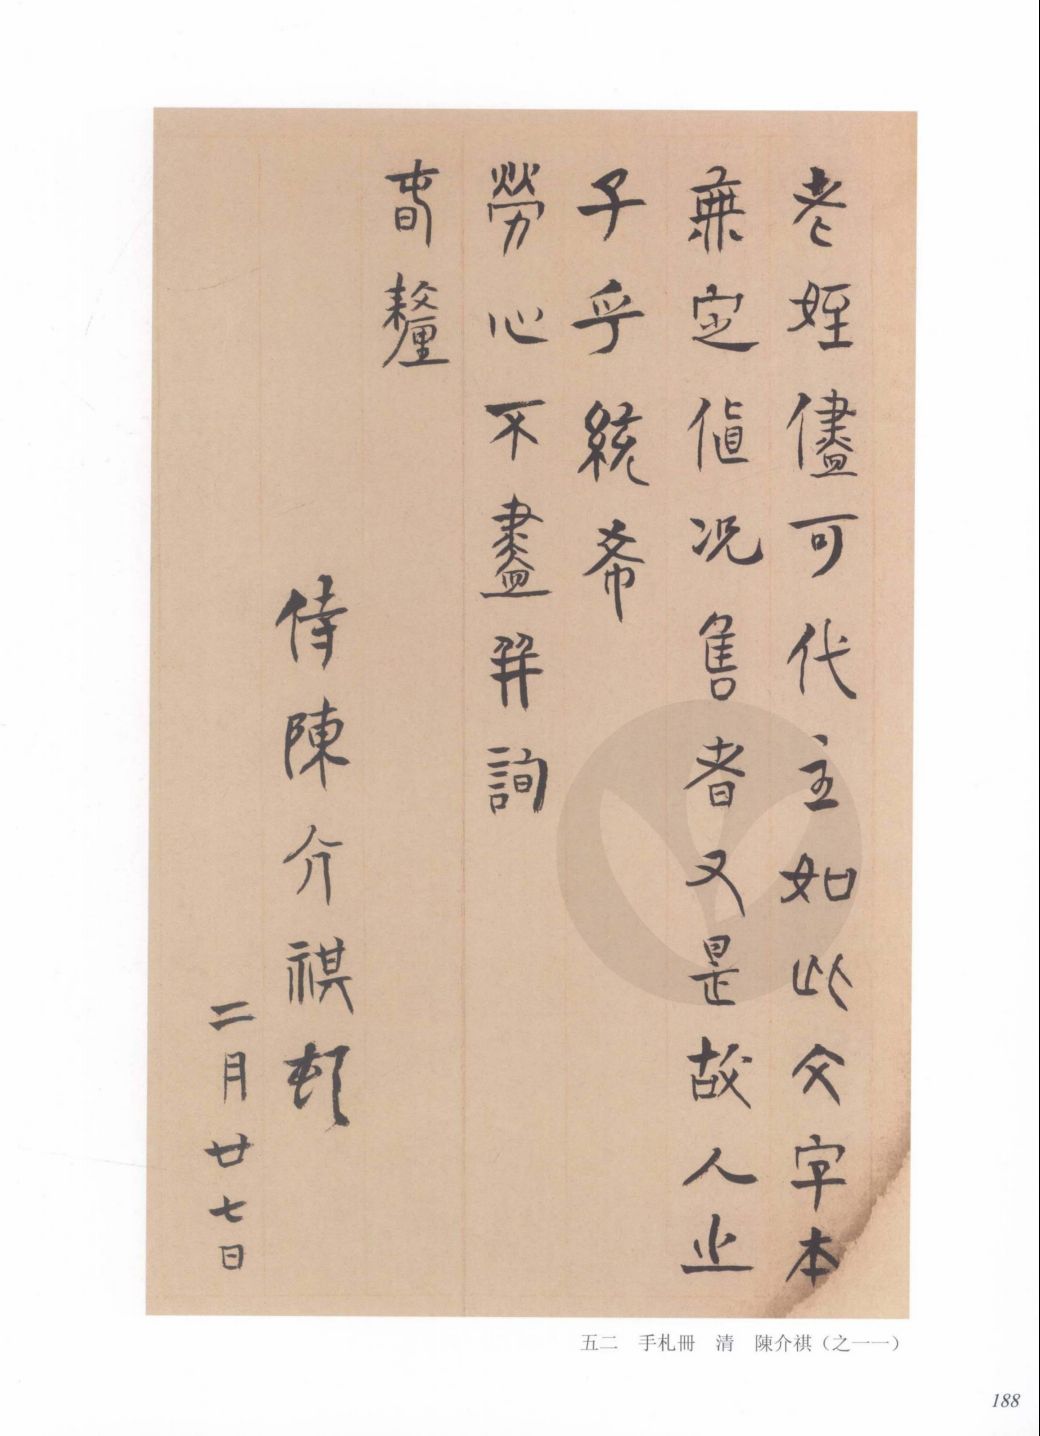 老姪儘可代主如此文字本
無定值况售者又是故人之
子乎統希
勞心不盡並詢
春釐
侍陳介祺頓
二月廿七日
五二 手札冊 清 陳介祺（之一一）
188